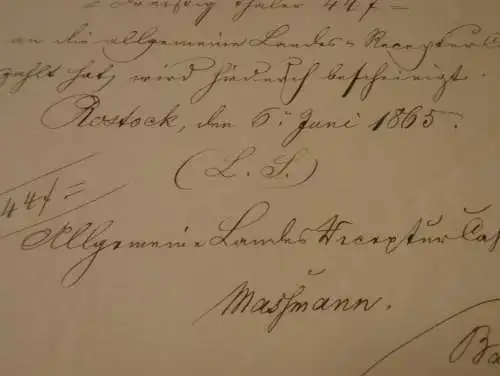 = Dreißig Thaler 44 ß =
an die allgemeine Landes-Receptur C
zahlt hat, wird hiedurch bescheinigt.
Rostock, den 6t Juni 1865.
(L. S.)
44 ß =
Allgemeine Landes Receptur Cas
Massmann.
Ba